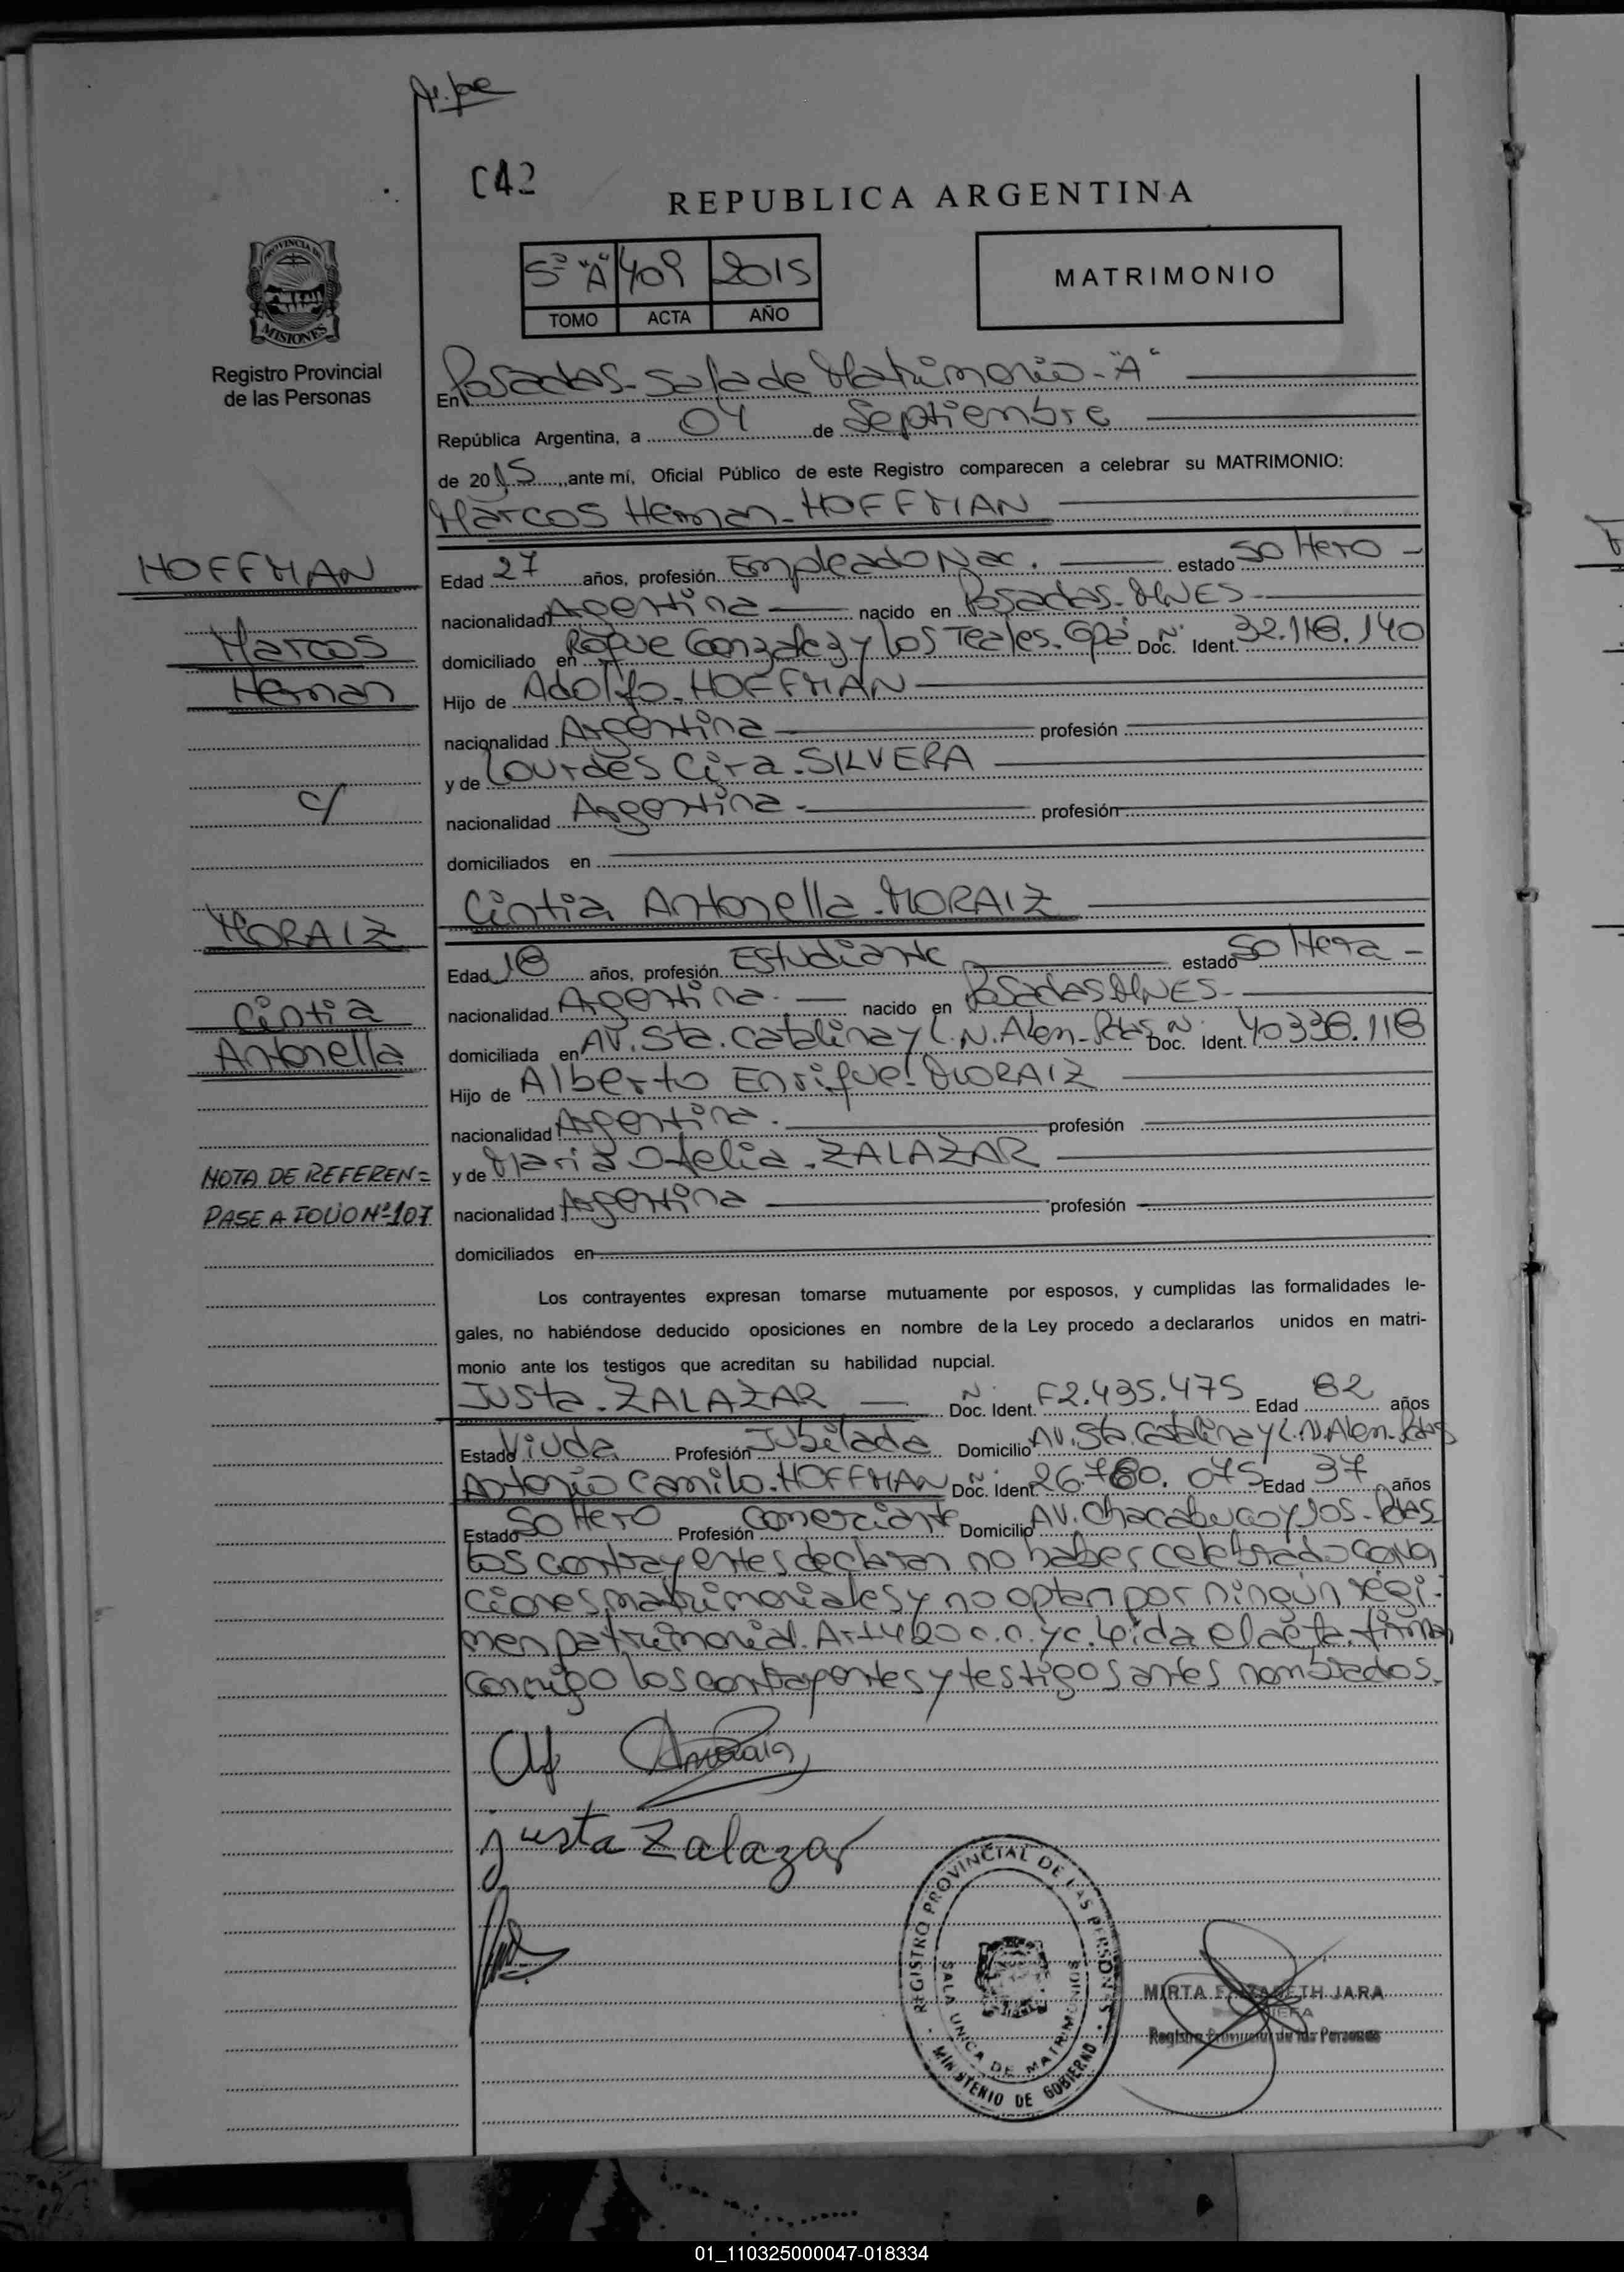 C42
REPUBLICA ARGENTINA
PROVINCIA DE
MISIONES
Registro Provincial
de las Personas
5º "A" 409 2015
TOMO ACTA AÑO
MATRIMONIO
En Posadas - Sala de Matrimonio - "A"
República Argentina, a 04 de Septiembre
de 2015, ante mí, Oficial Público de este Registro comparecen a celebrar su MATRIMONIO:
Marcos Hernan - HOFFMAN
HOFFMAN
Marcos
Hernan
c/
MORAIZ
Cintia
Antonella
NOTA DE REFEREN=
PASE A FOLIO Nº 107
Edad 27 años, profesión Empleado Nac. estado Soltero -
nacionalidad Argentina nacido en Posadas - MNES -
domiciliado en Roque Gonzalez y Los Teales. Gpá Doc. Nº Ident. 32.118.140
Hijo de Adolfo - HOFFMAN
nacionalidad Argentina profesión
y de Lourdes Cira - SILVERA
nacionalidad Argentina - profesión
domiciliados en
Cintia Antonella - MORAIZ
Edad 18 años, profesión Estudiante estado Soltera -
nacionalidad Argentina - nacido en Posadas MNES -
domiciliada en AV. Sta. Catalina y L. N. Alem - Pdas Doc. Nº Ident. 40338.118
Hijo de Alberto Enrique - MORAIZ
nacionalidad Argentina - profesión
y de Maria Ofelia - ZALAZAR
nacionalidad Argentina profesión
domiciliados en
Los contrayentes expresan tomarse mutuamente por esposos, y cumplidas las formalidades le-
gales, no habiéndose deducido oposiciones en nombre de la Ley procedo a declararlos unidos en matri-
monio ante los testigos que acreditan su habilidad nupcial.
Justa - ZALAZAR Doc. Nº Ident. F2.435.475 Edad 82 años
Estado Viuda Profesión Jubilada Domicilio AV. Sta. Catalina y L. N. Alem - Pdas
Antonio Camilo - HOFFMAN Doc. Nº Ident 26.780.075 Edad 37 años
Estado Soltero Profesión Comerciante Domicilio AV. Chacabuco y 105 - Pdas
Los contrayentes declaran no haber celebrado conven
ciones matrimoniales y no optan por ningún régi-
men patrimonial. Art 420 c.c. y c. Leída el acta, firman
conmigo los contrayentes y testigos antes nombrados.
Justa Zalazar
REGISTRO PROVINCIAL DE LAS PERSONAS
SALA UNICA DE MATRIMONIOS
MINISTERIO DE GOBIERNO
MIRTA ELIZABETH JARA
JEFA
Registro Provincial de las Personas
01_110325000047-018334